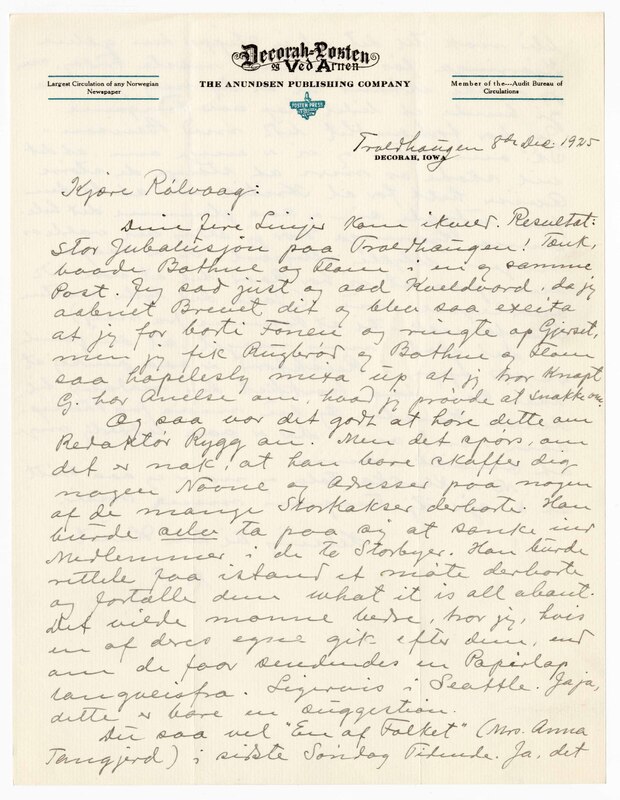 Decorah-Posten
og Ved Arnen
THE ANUNDSEN PUBLISHING COMPANY
Largest Circulation of any Norwegian
Newspaper
Member of the---Audit Bureau of
Circulations
POSTEN PRESS
Troldhaugen 8th Dec. 1925
DECORAH, IOWA
Kjære Rölvaag:
Dine fire Linjer kom ikveld. Resultat:
Stor Jubalusjon paa Troldhaugen! Tænk,
baade Bothne og Flom i en og samme
Post. Jeg sad just og aad Kveldvord, da jeg
aabnet Brevet dit og blev saa excita
at jeg for borti Fonen og ringte op Gjerset,
men jeg fik Rugbrød og Bothne og Flom
saa hopelesly mixa up at jeg tror knapt
G. har Anelse om, hvad jeg prøvde at snakke om.
Og saa var det godt at høre dette om
Redaktør Rygg au. Men det spørs, om
det er nok, at han bare skaffer dig
nogen Navne og Adresser paa nogen
af de mange Storkakser derborte. Han
burde selv ta paa sig at sanke inn
Medlemmer i de to Storbyer. Han burde
rettele faa istand et møte derborte
og fortælle dem what it is all about.
Det vilde monne bedre, tror jeg, hvis
en af deres egne gik efter dem, end
om de faar sendendes en Papirlap
langveisfra. Ligervis i Seattle. Jaja,
dette er bare en suggestion.
Du saa vel "En af Folket" (Mrs. Anna
Tangjerd) i sidste Søndag Tidende. Ja, det